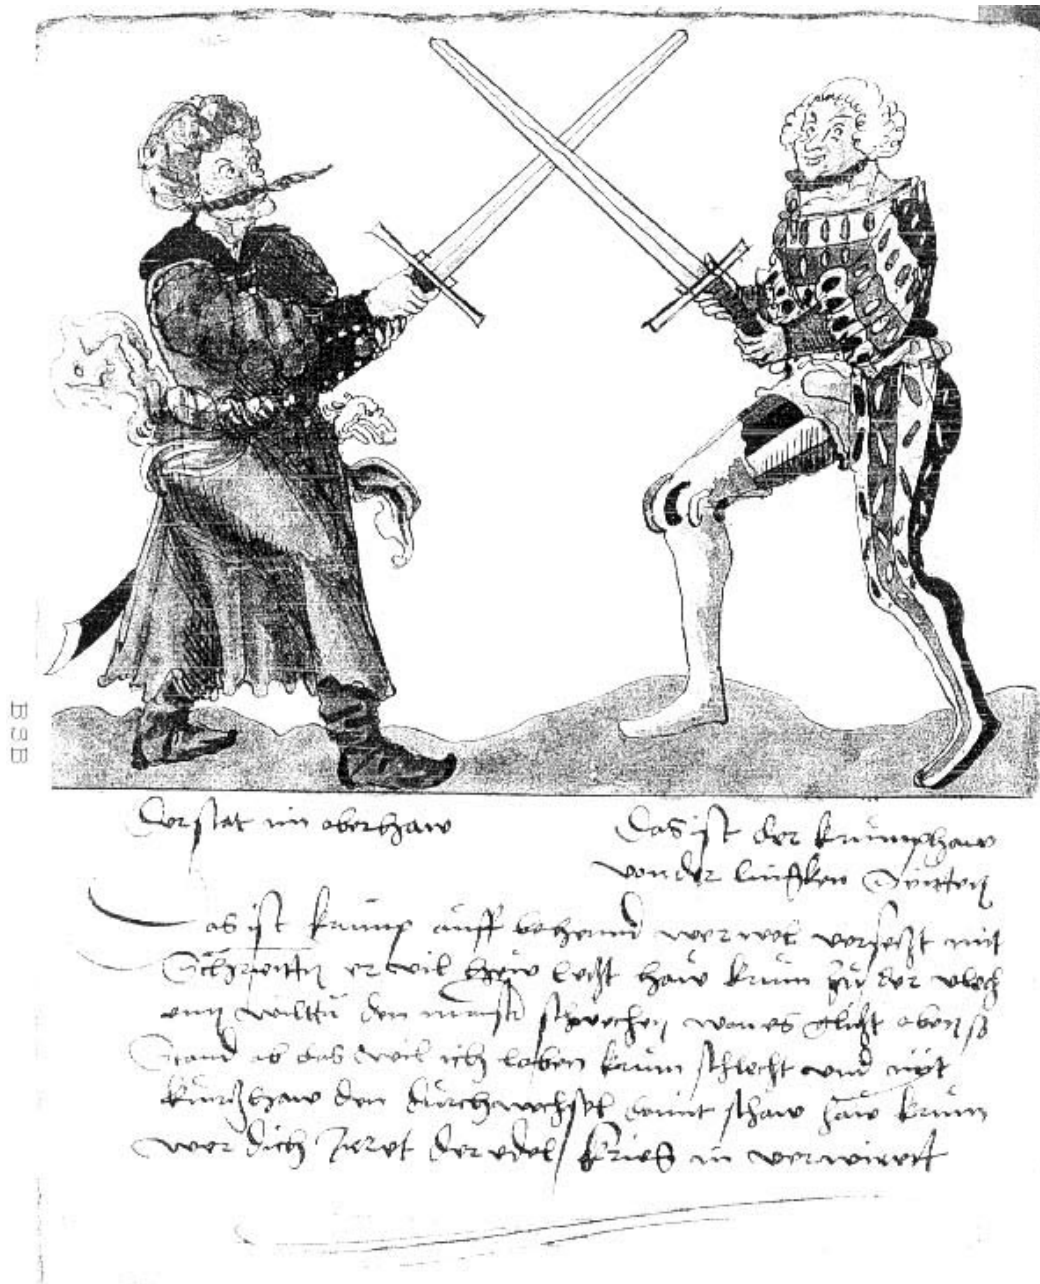 Der stat im oberhaw
Das ist der krumphaw
von der lincken Seÿtten
Das ist krump auff behennd wer wol versetzt mit
Schrÿtten er vil hew letzt haw krum zu der vlech
enn wilttu den maister schwechen wan es glitzt oben so
Stand ab das wil ich loben krum schlecht und nÿt
kurtzhaw den durchwechsel damit schaw haw krum
wer dich irret der edel krieg in verwirrett
B3B